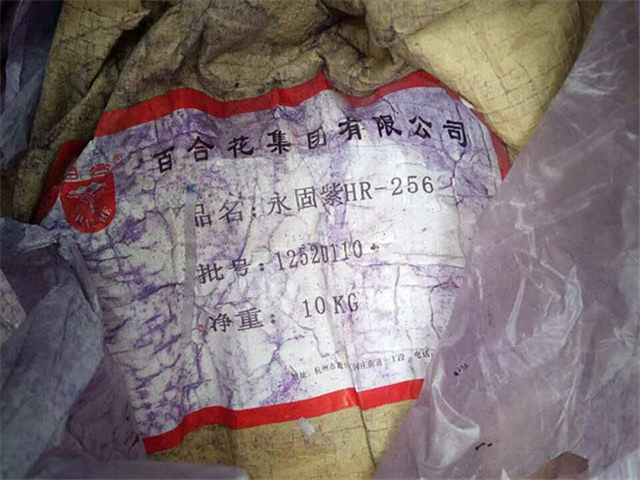 百合花集团有限公司
品名:永固紫HR-256
批号:1252D110
净重: 10KG
地址:杭州市 一工段 电话